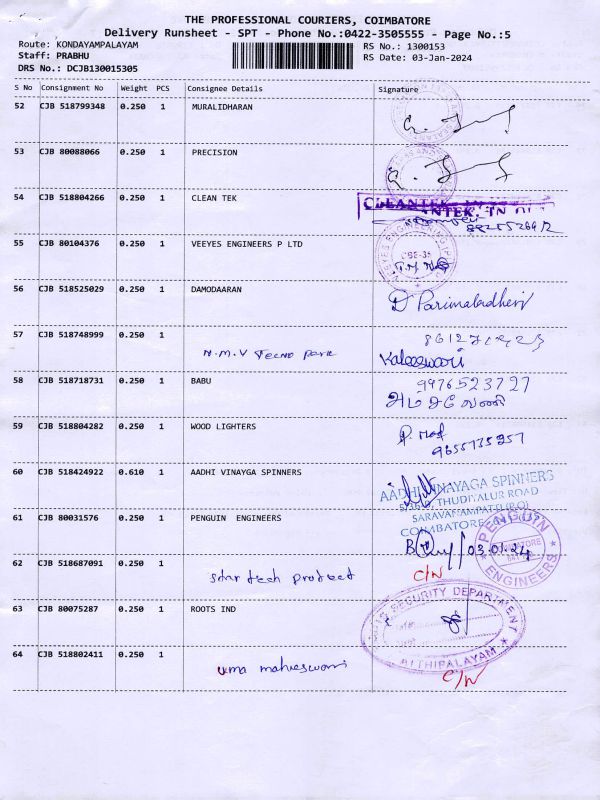 THE PROFESSIONAL COURIERS, COIMBATORE
Delivery Runsheet - SPT - Phone No.:0422-3505555 - Page No.:5
Route: KONDAYAMPALAYAM
Staff: PRABHU
DRS No.: DCJB130015305
RS No.: 1300153
RS Date: 03-Jan-2024
S No Consignment No Weight PCS Consignee Details Signature
52 CJB 518799348 0.250 1 MURALIDHARAN
53 CJB 80088066 0.250 1 PRECISION
54 CJB 518804266 0.250 1 CLEAN TEK
CLEANTEK
55 CJB 80104376 0.250 1 VEEYES ENGINEERS P LTD
56 CJB 518525029 0.250 1 DAMODAARAN
D Parimaladhevi
57 CJB 518748999 0.250 1
N.M.V Tecno Park
Kaleeswari
58 CJB 518718731 0.250 1 BABU
9976523727
59 CJB 518804282 0.250 1 WOOD LIGHTERS
9655735957
60 CJB 518424922 0.610 1 AADHI VINAYGA SPINNERS
AADHI VINAYAGA SPINNERS
THUDIYALUR ROAD
SARAVANAMPATTI (P.O)
COIMBATORE
61 CJB 80031576 0.250 1 PENGUIN ENGINEERS
PENGUIN ENGINEERS
03.01.24
62 CJB 518687091 0.250 1
Star tech protect
C/N
63 CJB 80075287 0.250 1 ROOTS IND
SECURITY DEPARTMENT
ATHIPALAYAM
64 CJB 518802411 0.250 1
uma maheswari
C/N